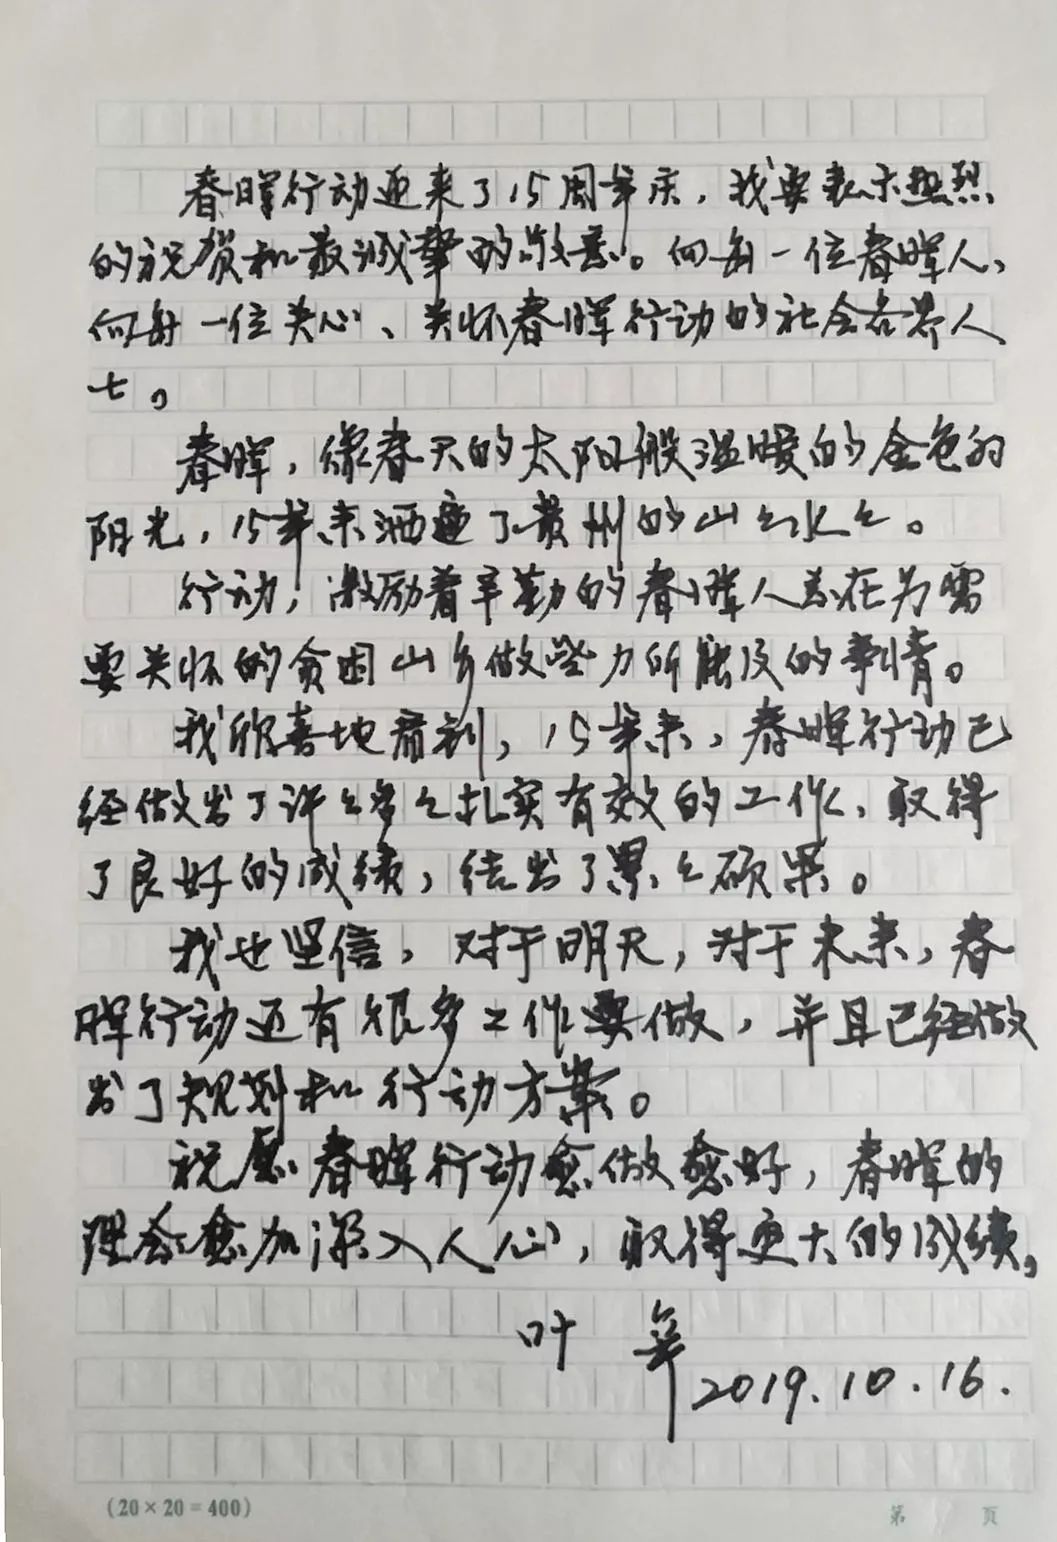 春晖行动迎来了15周年庆，我要表示热烈
的祝贺和最诚挚的敬意。向每一位春晖人、
向每一位关心、关怀春晖行动的社会各界人
士。
春晖，像春天的太阳般温暖的金色的
阳光，15年来洒遍了贵州的山山水水。
行动，激励着辛勤的春晖人总在为需
要关怀的贫困山乡做些力所能及的事情。
我欣喜地看到，15年来，春晖行动已
经做出了许许多多扎实有效的工作，取得
了良好的成绩，结出了累累硕果。
我也坚信，对于明天，对于未来，春
晖行动还有很多工作要做，并且已经做
出了规划和行动方案。
祝愿春晖行动愈做愈好，春晖的
理念愈加深入人心，取得更大的成绩。
叶辛
2019.10.16.
(20×20=400)
第 页